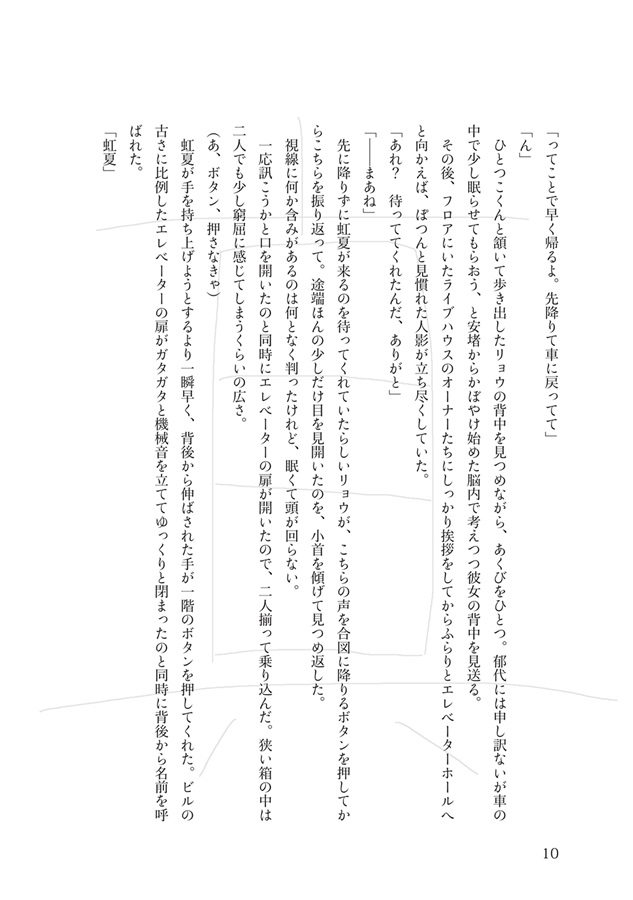 「ってことで早く帰るよ。先降りて車に戻ってて」
「ん」
　ひとつこくんと頷いて歩き出したリョウの背中を見つめながら、あくびをひとつ。郁代には申し訳ないが車の
中で少し眠らせてもらおう、と安堵からかぼやけ始めた脳内で考えつつ彼女の背中を見送る。
　その後、フロアにいたライブハウスのオーナーたちにしっかり挨拶をしてからふらりとエレベーターホールへ
と向かえば、ぽつんと見慣れた人影が立ち尽くしていた。
「あれ？　待っててくれたんだ、ありがと」
「――まあね」
　先に降りずに虹夏が来るのを待ってくれていたらしいリョウが、こちらの声を合図に降りるボタンを押してか
らこちらを振り返って。途端ほんの少しだけ目を見開いたのを、小首を傾げて見つめ返した。
視線に何か含みがあるのは何となく判ったけれど、眠くて頭が回らない。
　一応訊こうかと口を開いたのと同時にエレベーターの扉が開いたので、二人揃って乗り込んだ。狭い箱の中は
二人でも少し窮屈に感じてしまうくらいの広さ。
（あ、ボタン、押さなきゃ）
　虹夏が手を持ち上げようとするより一瞬早く、背後から伸ばされた手が一階のボタンを押してくれた。ビルの
古さに比例したエレベーターの扉がガタガタと機械音を立ててゆっくりと閉まったのと同時に背後から名前を呼
ばれた。
「虹夏」
10